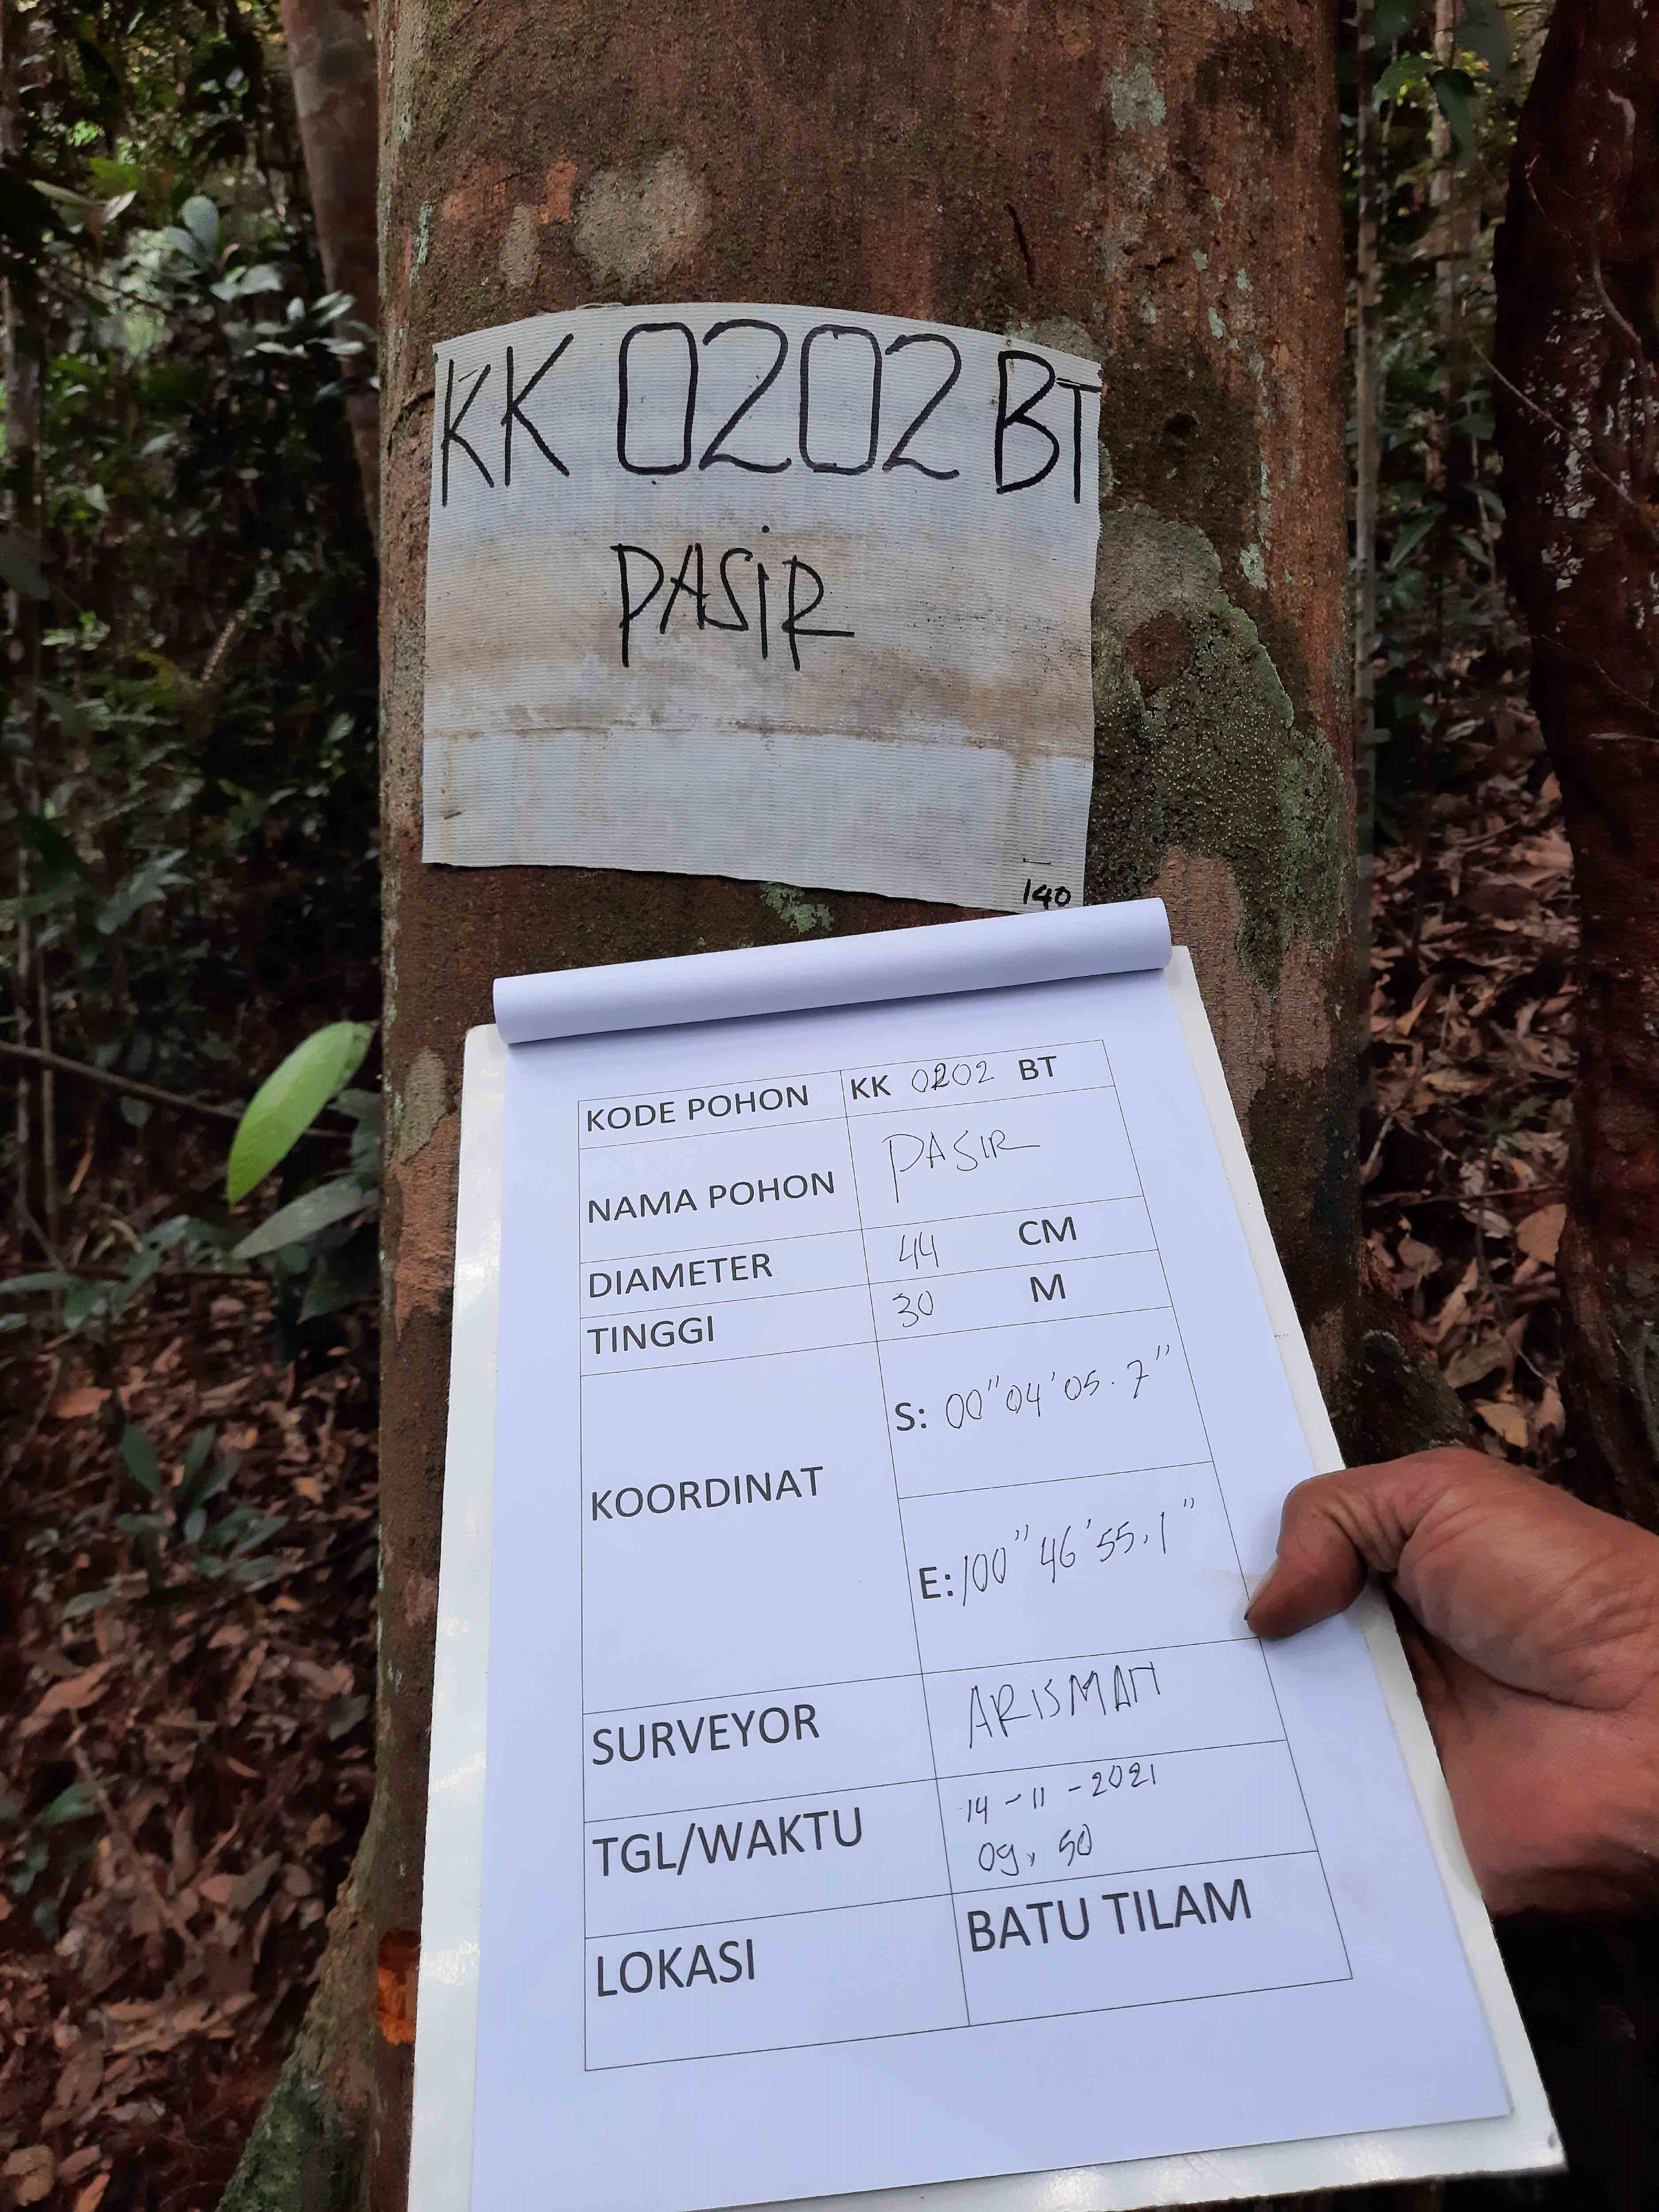 KK 0202 BT
PASiR
140
KODE POHON KK 0202 BT
NAMA POHON PASIR
DIAMETER 44 CM
TINGGI 30 M
KOORDINAT
S: 00"04'05.7"
E: 100"46'55.1"
SURVEYOR ARISMAN
TGL/WAKTU 14-11-2021
09, 50
LOKASI BATU TILAM